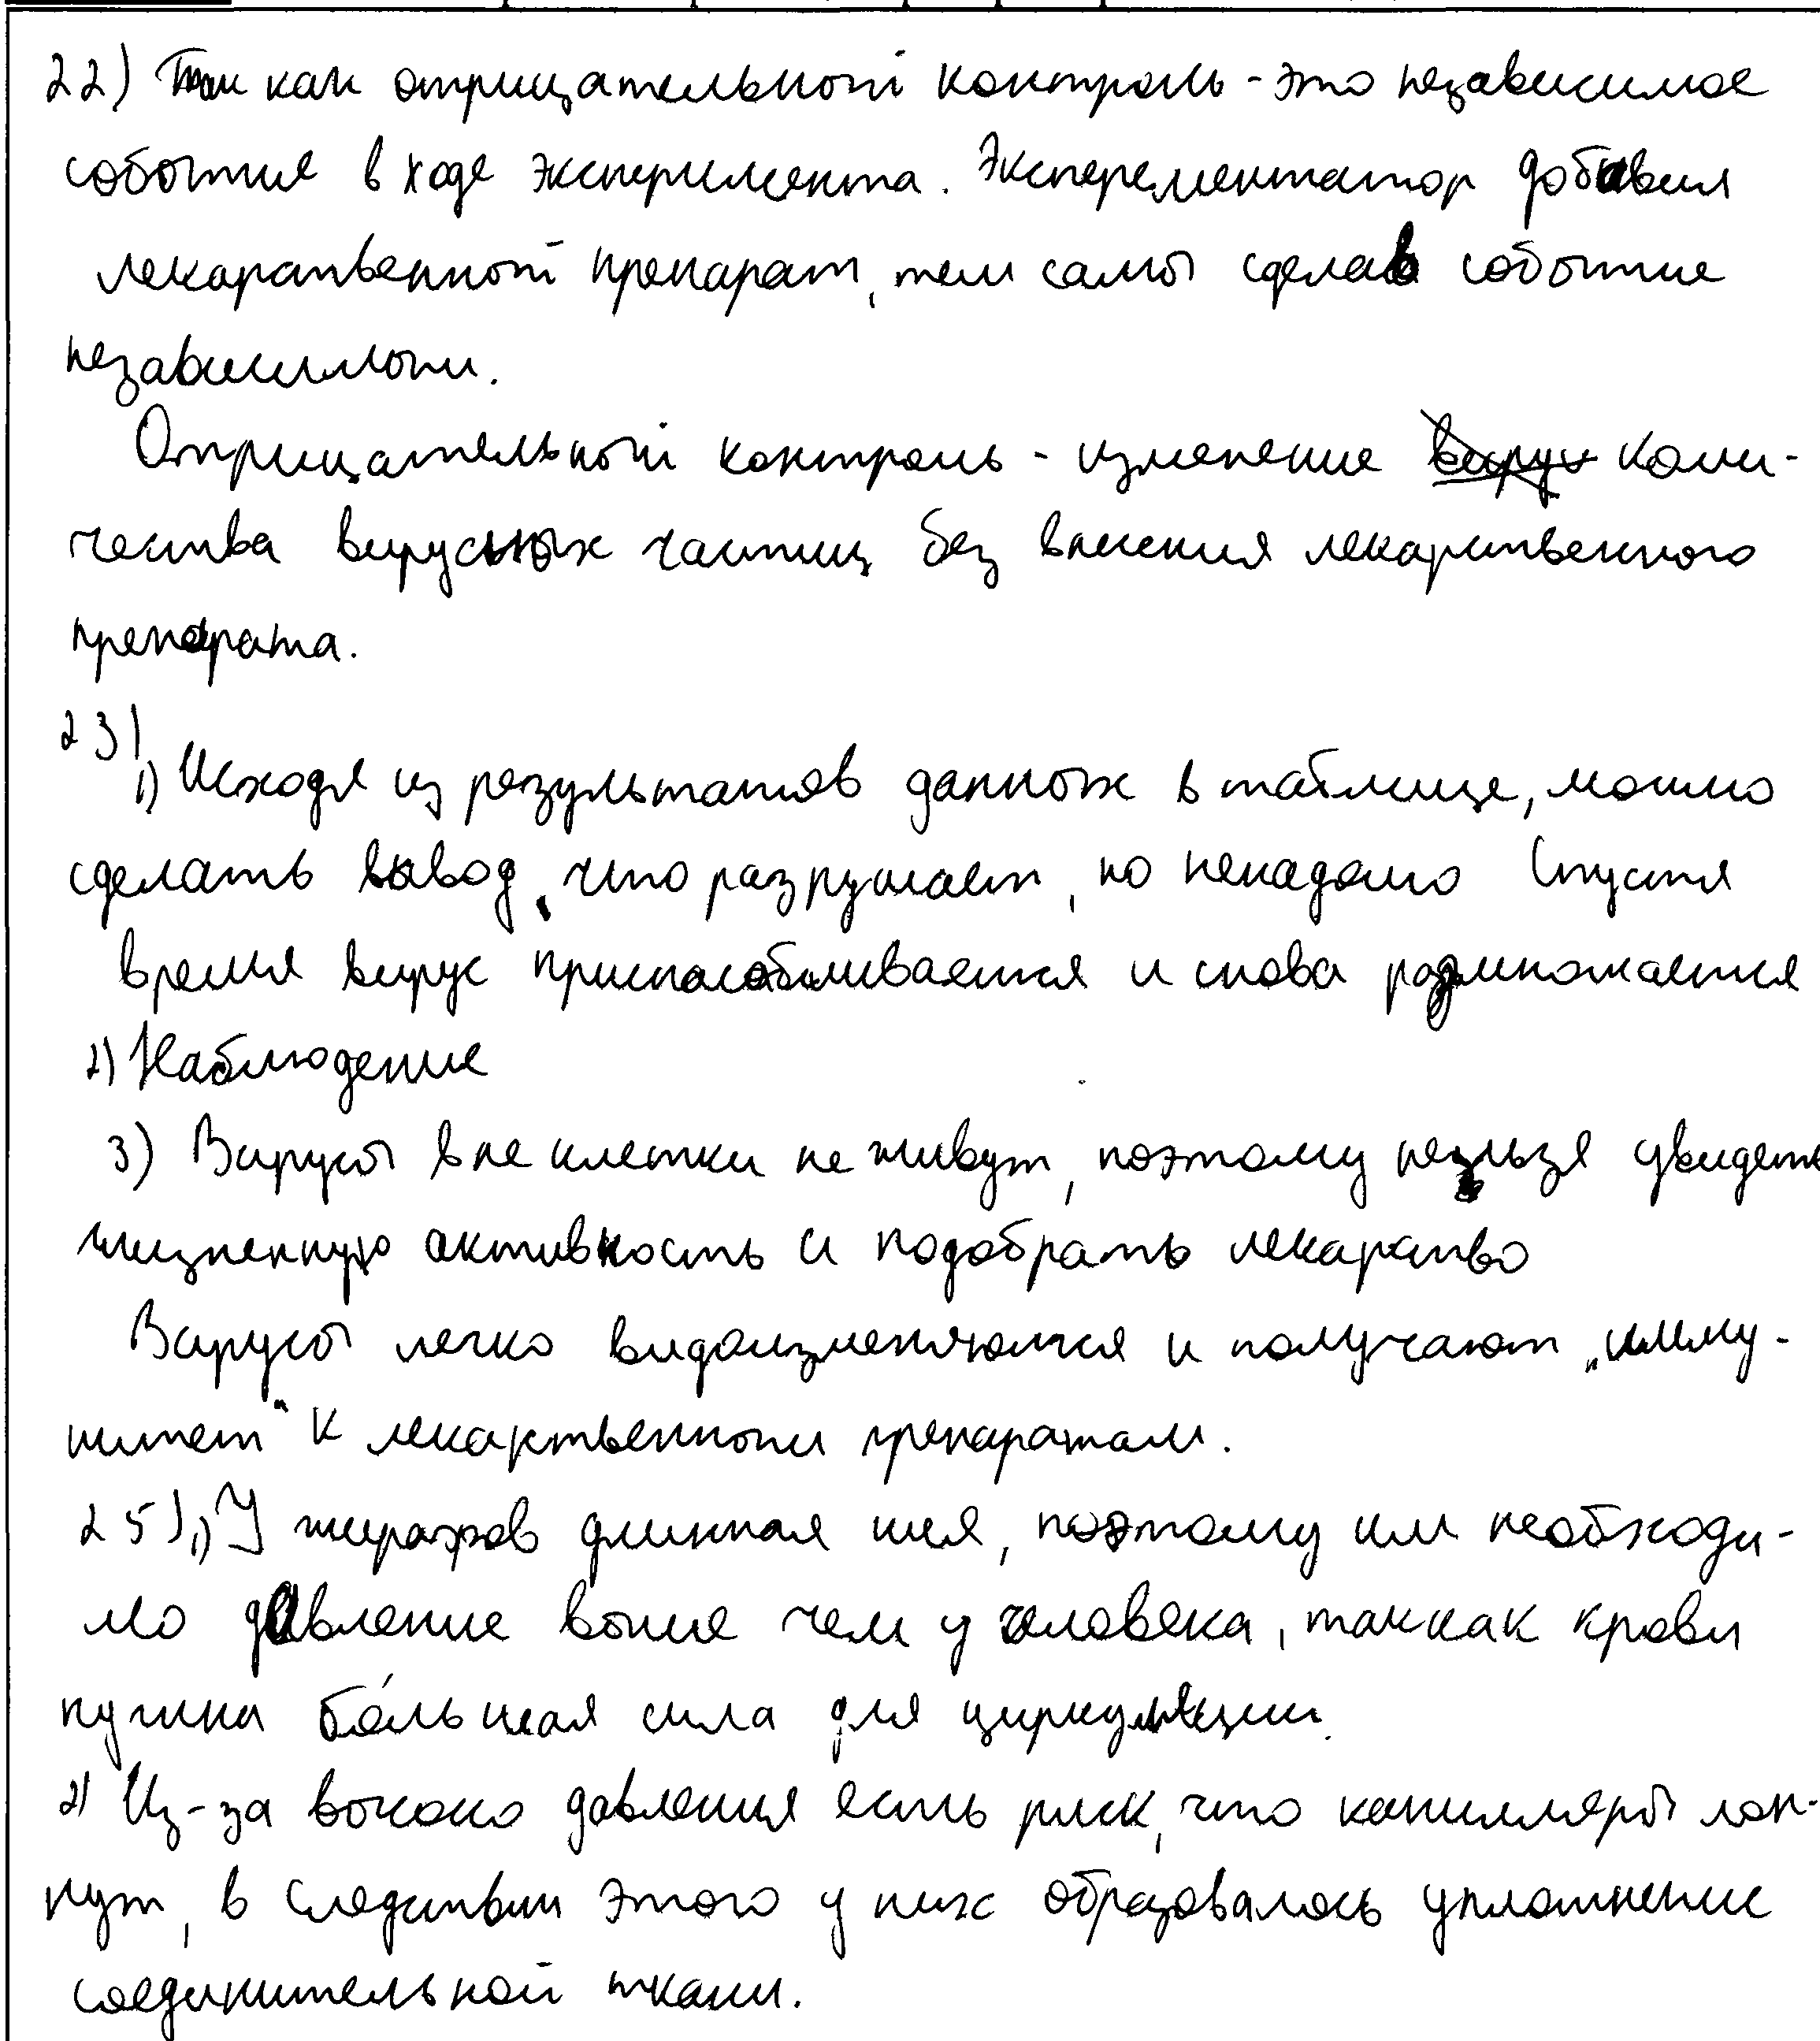 22) Так как отрицательный контроль - это независимое
событие в ходе эксперимента. Эксперементатор добавил
лекарственный препарат, тем самы сделав событие
независимым.
Отрицательный контроль - изменение коли-
чества вирусных частиц без влияния лекарственного
препарата.
23)
1) Исходя из результатов данных в таблице, можно
сделать вывод, что разрушает, но ненадолго Спустя
время вирус приспосабливается и снова размножается
2) Наблюдение
3) Вирусы вне клетки не живут, поэтому нельзя увидеть
жизненную активность и подобрать лекарство
Вирусы легко видоизменяются и получают „имму-
нитет“ к лекарственным препаратам.
25) 1) У жирафов длинная шея, поэтому им необходи-
мо давление выше чем у человека, так как крови
нужна бо́льшая сила для циркуляции.
2) Из-за высоко давления есть риск, что капилляры лоп-
нут, в следствии этого у них образовалось уплотнение
соединительной ткани.